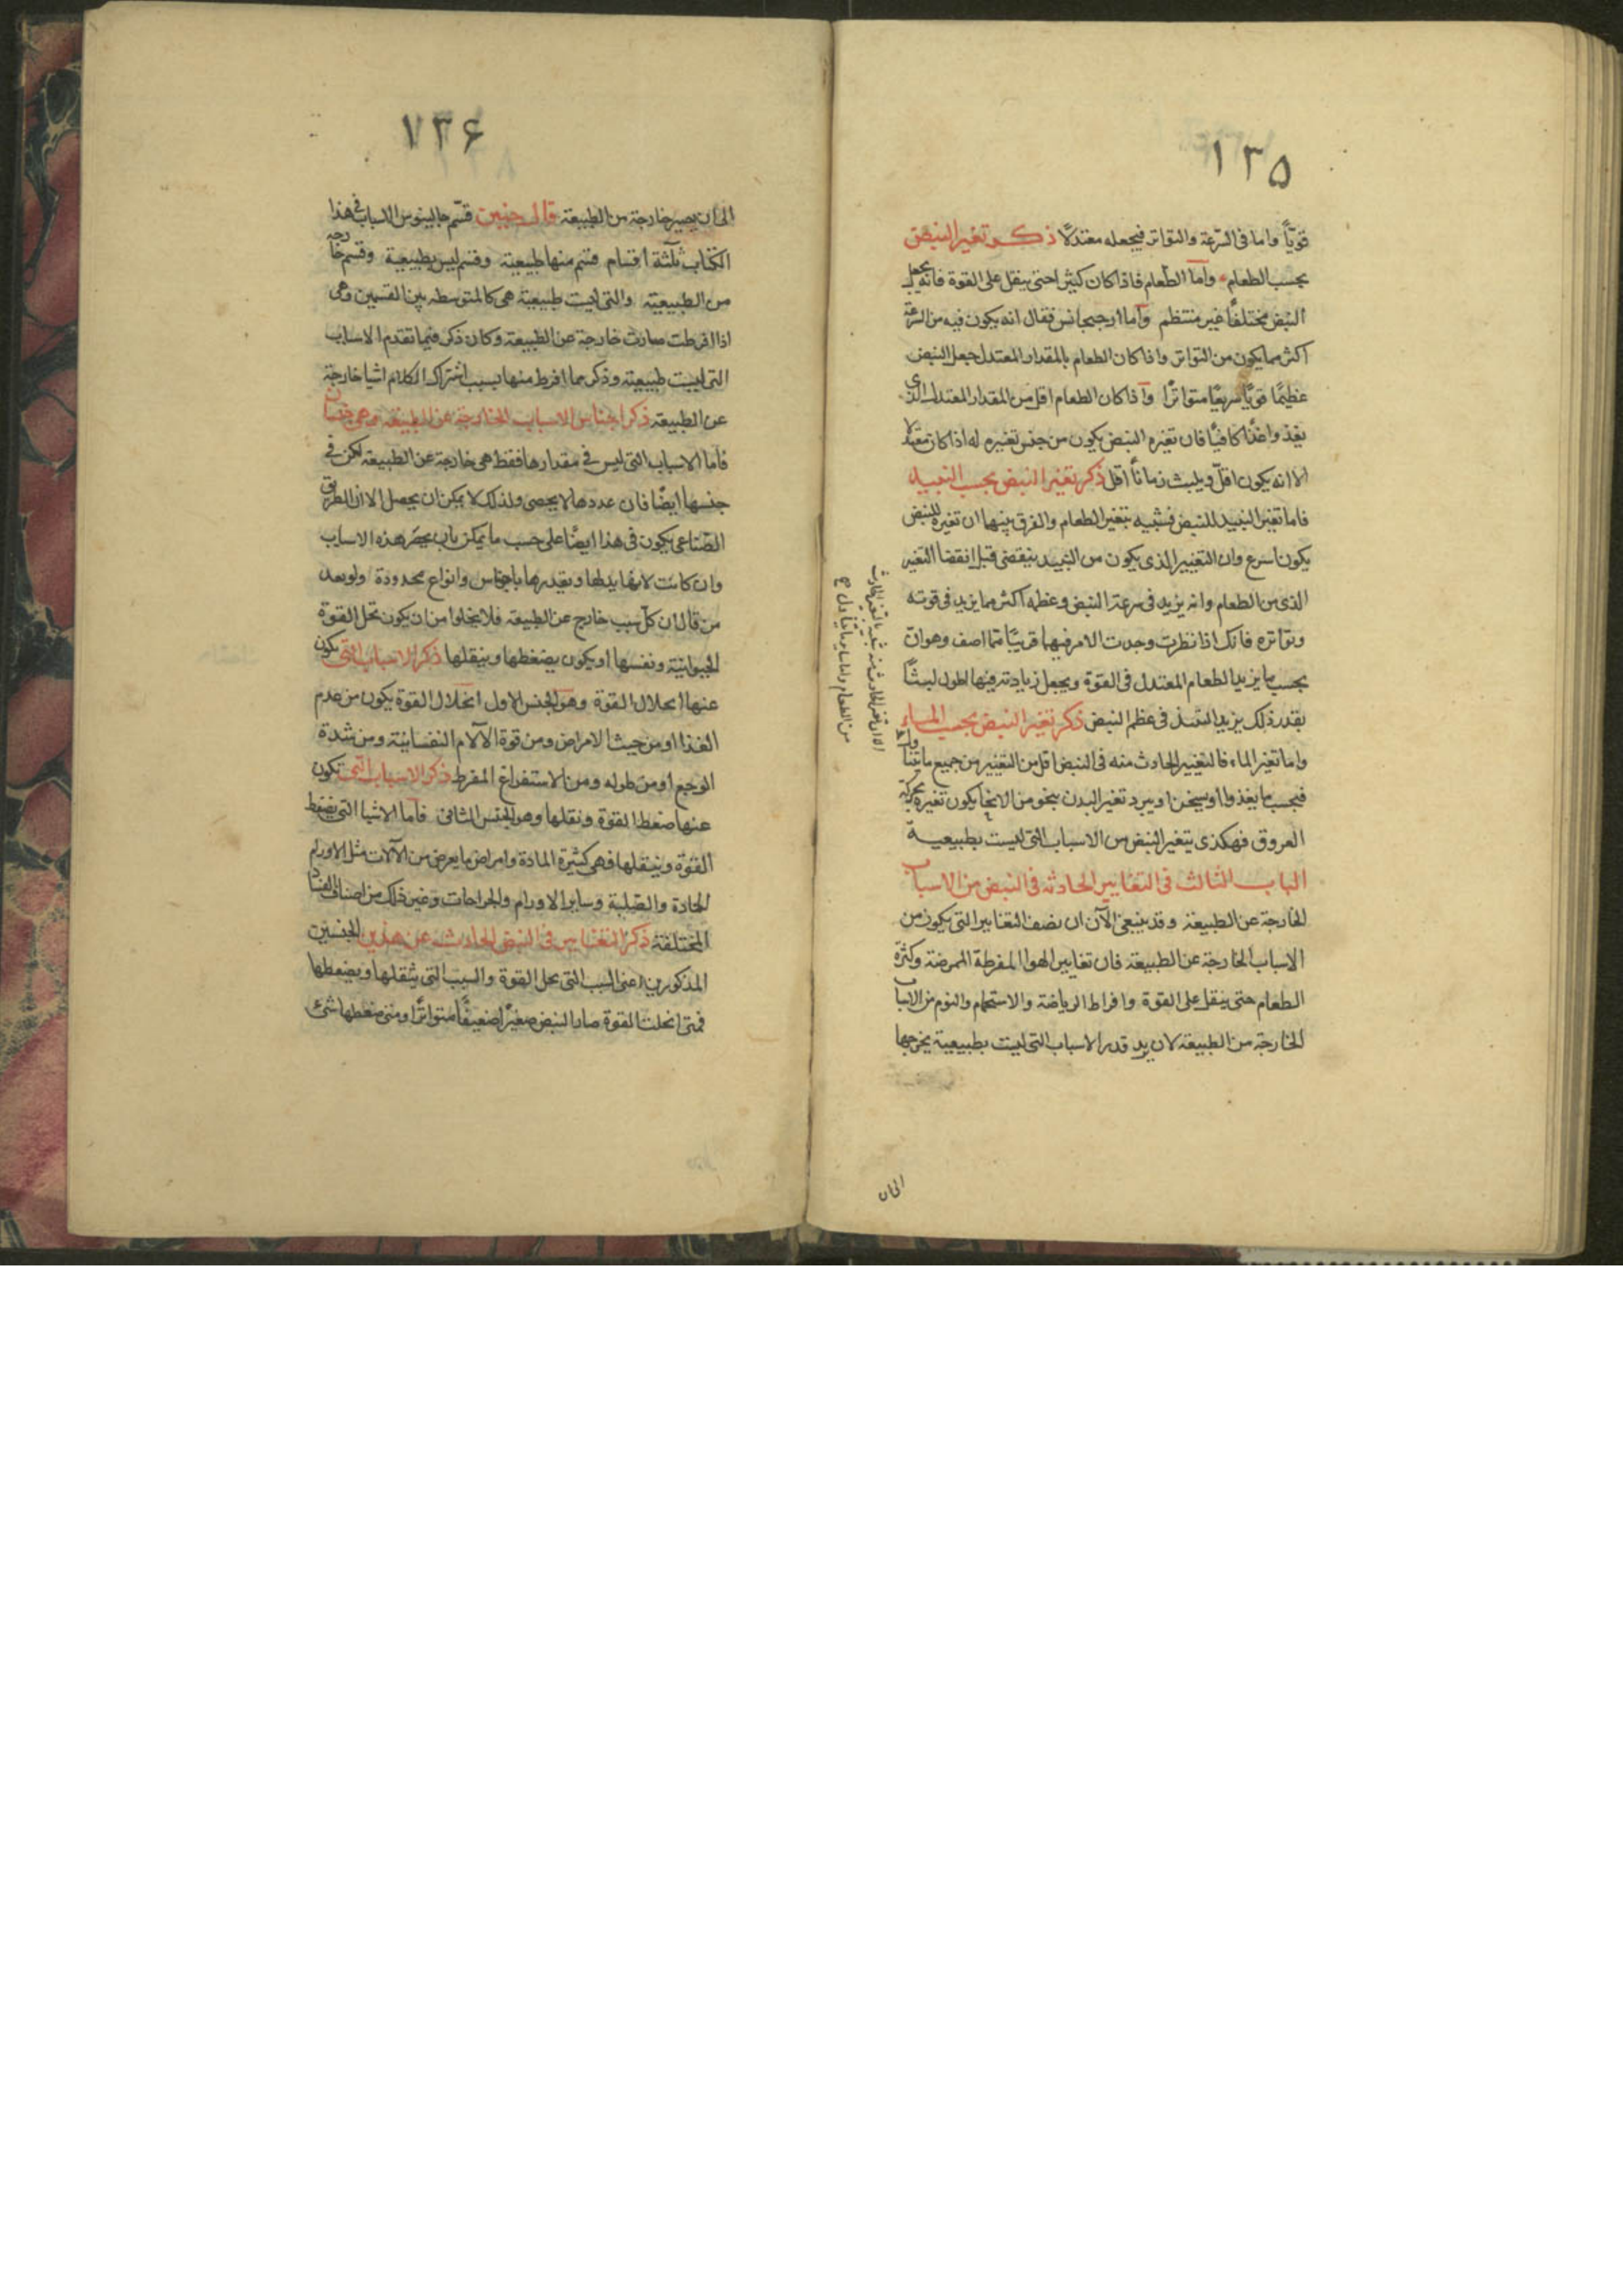 ١٣٥
قويّاً واما فى السّرعة والتواتر فيجعله معتدلاً ذكر تغير النبض
بحسب الطعام واما الطعام فاذا كان كثيرا حتى يثقل على القوة فانه يجعل
النبض مختلفاً غير منتظم واما ارجيجانس فقال انه يكون فيه من السرعة
اكثر مما يكون من التواتر واذا كان الطعام بالمقدار المعتدل جعل النبض
عظيمًا قويًا سريعًا متواترًا واذا كان الطعام اقل من المقدار المعتدل الذى
يغذوا غذًا كافيًا فان تغيره النبض يكون من جنس تغييره له اذا كان معتدلا
الا انه يكون اقلّ ويلبث زماناً اقل ذكر تغير النبض بحسب النبيد
فاما تغير النبيد للنبض فشبيه بتغير الطعام والفرق بينها ان تغيره للنبض
يكون اسرع وان التغيير الذى يكون من النبيد ينقضى قبل انقضا التغير
الذى من الطعام وانه يزيد فى سرعة النبض وعظمه اكثر مما يزيد فى قوته
وتواتره فانك اذا نظرت وجدت الامر فيهما قريبًا مما اصف وهو ان
بحسب ما يزيد الطعام المعتدل فى القوة ويجعل زيادته فيها اطول لبثًا
بقدر ذلك يزيد النبيذ فى عظم النبض ذكر تغير النبض بحسب الماء
واما تغير الماء فالتغيير الحادث منه فى النبض اقل من التغيير من جميع ما يتناول
فبحسب ما يغذوا او يسخن او يبرد تغير البدن بنحو من الانحا يكون تغيره بحركة
العروق فهكذى يتغير النبض من الاسباب التى ليست بطبيعية
الباب الثالث فى التغايير الحادثه فى النبض من الاسباب
الخارجة عن الطبيعة وقد ينبغى الآن ان نصف التغايير التى يكون من
الاسباب الخارجة عن الطبيعة فان تغايير الهوا المفرطة الممرضة وكثرة
الطعام حتى يثقل على القوة وافراط الرياضة والاستحمام والنوم من الاسباب
الخارجة من الطبيعة لان يزيد قدر الاسباب التى ليست بطبيعية يخرجها
الى ان
١٣۶
الى ان يصير خارجة من الطبيعة قال حنين قسّم جالينوس الاسباب فى هذا
الكتاب ثلثة اقسام قسم منها طبيعية وقسم ليس بطبيعية وقسم خارجه
من الطبيعية والتى ليست طبيعية هى كالمتوسطه بين القسمين وهى
اذا افرطت صارت خارجة عن الطبيعة وكان ذكر فيما تقدم الاسباب
التى ليست طبيعية وذكر مما افرط منها بسبب اشتراك الكلام اشيا خارجة
عن الطبيعة ذكر اجناس الاسباب الخارجة عن الطبيعة وهى جنسان
فاما الاسباب التى ليس فى مقدارها فقط هى خارجة عن الطبيعة لكن فى
جنسها ايضًا فان عددها لا يحصى ولذلك لا يمكن ان يحصل الا ان الطريق
الصّناعى يكون فى هذا ايضًا على حسب ما يمكن بان يحصر هذه الاسباب
وان كانت لا نهاية لها وتقديرها باجناس وانواع محدودة ولو بعد
من قال ان كلّ سبب خارج عن الطبيعة فلا يخلوا من ان يكون تحل القوة
الحيوانية ونفسها او يكون يضغطها ويثقلها ذكر الاسباب التى يكون
عنها انحلال القوة وهو الجنس الاول انحلال القوة يكون من عدم
الغذا او من حيث الامراض ومن قوة الآلام النفسانية ومن شدة
الوجع او من طوله ومن الاستفراغ المفرط ذكر الاسباب التى تكون
عنها ضغط القوة وثقلها وهو الجنس الثانى فاما الاشيا التى يضغط
القوّة ويثقلها فهى كثيرة المادة وامراض ما يعرض من الآلات مثل الاورام
الحادة والصّلبة وساير الاورام والجراحات وغير ذلك من اصناف الفساد
المختلفة ذكر التغايير فى النبض الحادثه عن هذين الجنسين
المذكورين اعنى السبب التى يحل القوة والسبب التى يثقلها ويضغطها
فمتى انحلت القوة صار النبض صغيرًا ضعيفًا متواترًا ومتى ضغطها شئ